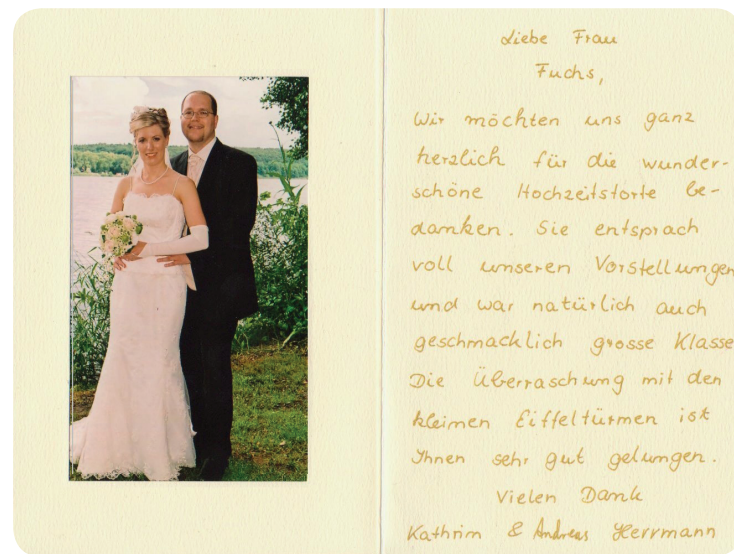 Liebe Frau
Fuchs,
Wir möchten uns ganz
herzlich für die wunder-
schöne Hochzeitstorte be-
danken. Sie entsprach
voll unseren Vorstellungen
und war natürlich auch
geschmacklich grosse Klasse
Die Überraschung mit den
kleinen Eiffeltürmen ist
Ihnen sehr gut gelungen.
Vielen Dank
Kathrin & Andreas Herrmann